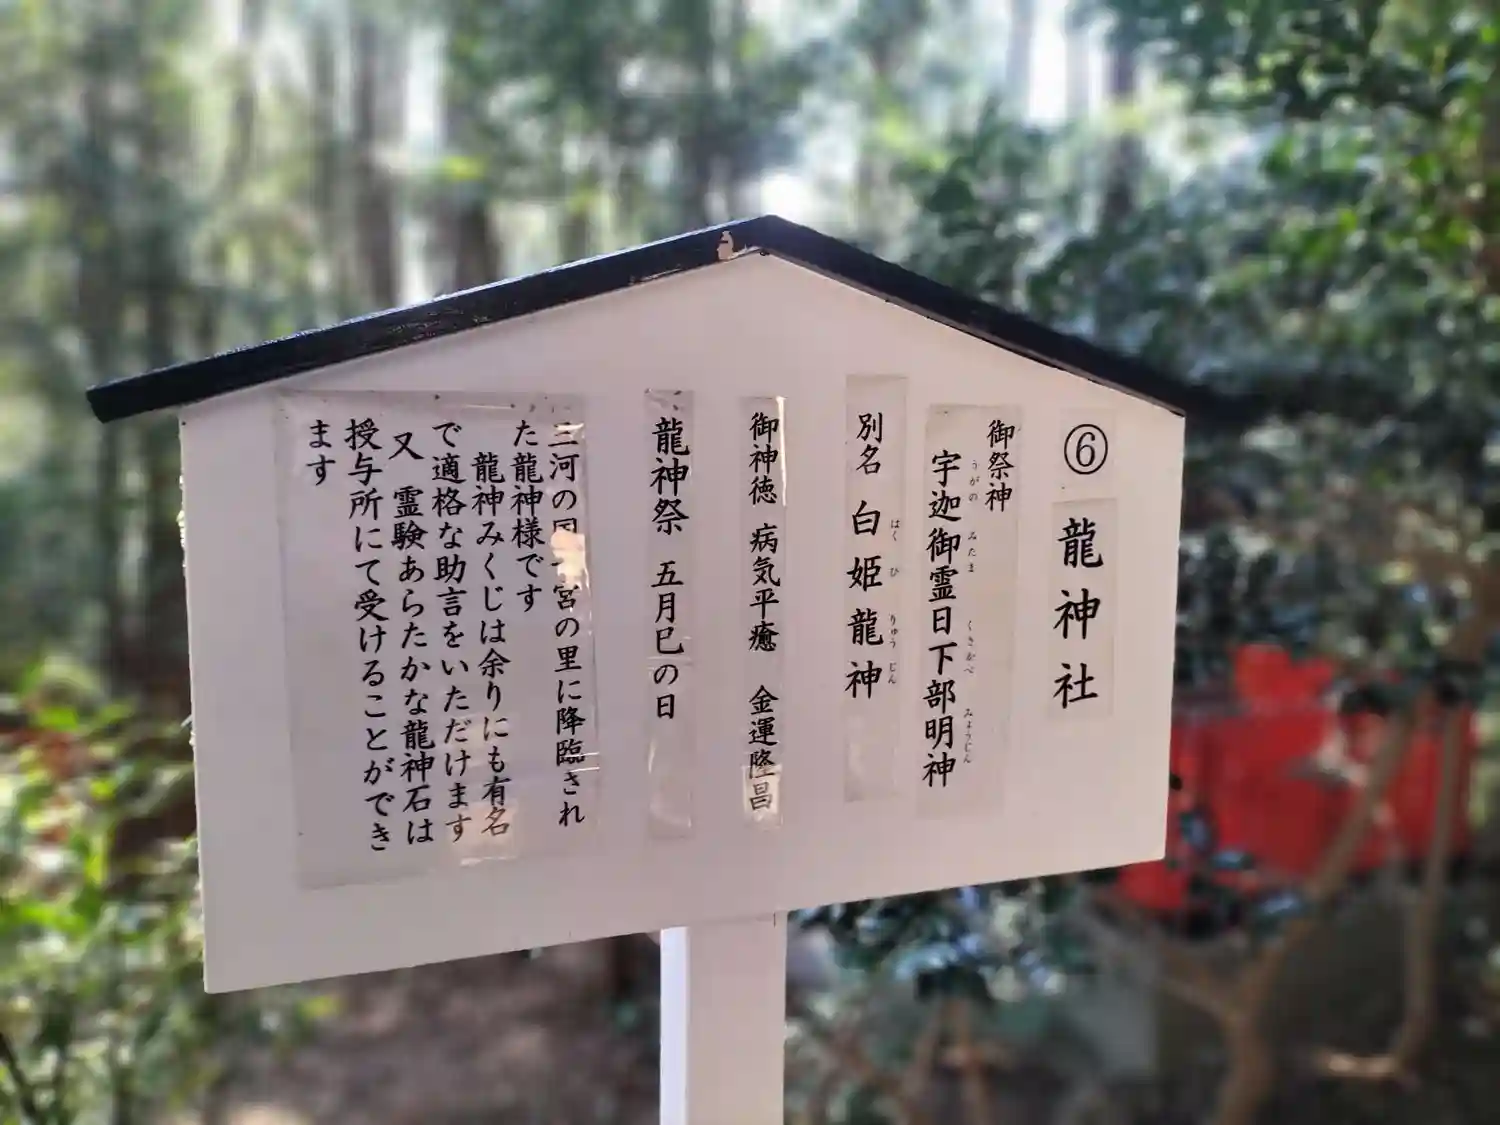 ⑥ 龍神社
御祭神
宇迦御霊日下部明神
うがの みたま くさかべ みょうじん
別名 白姫龍神
はく ひ りゅう じん
御神徳 病気平癒 金運隆昌
龍神祭 五月巳の日
三河の国一宮の里に降臨され
た龍神様です
龍神みくじは余りにも有名
で適格な助言をいただけます
又 霊験あらたかな龍神石は
授与所にて受けることができ
ます